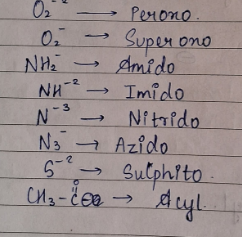 O₂⁻² → Perono.
O₂⁻ → Superono
NH₂⁻ → Amido
NH⁻² → Imido
N⁻³ → Nitrido
N₃⁻ → Azido
S⁻² → Sulphito.
O
CH₃-C → Acyl.